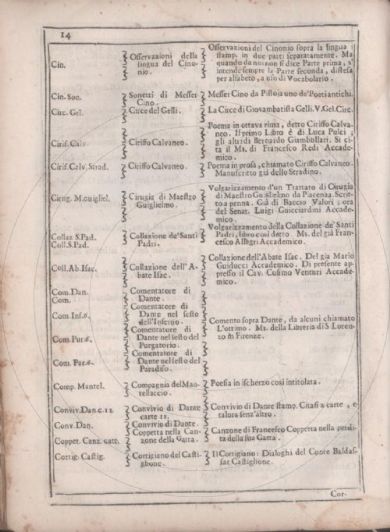 14
Cin. Osservazioni della lingua del Cinonio. Osservazioni del Cinonio sopra la lingua:
stamp. in due parti separatamente. Ma
quando da noi non si dice Parte prima, s'
intende sempre la Parte seconda, distesa
per alfabeto, a uso di Vocabolario.
Cin. Son. Sonetti di Messer Cino. Messer Cino da Pistoia uno de' Poeti antichi.
Circ. Gel. Circe del Gelli. La Circe di Giovambatista Gelli. V. Gel. Circ.
Cirif. Calv. Ciriffo Calvaneo. Poema in ottava rima, detto Ciriffo Calvaneo.
Il primo Libro è di Luca Pulci;
gli altri di Bernardo Giambullari. Si cita
il Ms. di Francesco Redi Accademico.
Cirif. Calv. Strad. Ciriffo Calvaneo. Poema in prosa, chiamato Ciriffo Calvaneo.
Manuscritto già dello Stradino.
Cirug. M. Guigliel. Cirugia di Maestro Guiglielmo. Volgarizzamento d'un Trattato di Cirugia
di Maestro Guglielmo da Piacenza. Scritto
a penna. Già di Baccio Valori; ora
del Senat. Luigi Guicciardini Accademico.
Collaz. S. Pad.
Coll. S. Pad. Collazione de' Santi Padri. Volgarizzamento della Collazione de' Santi
Padri, libro così detto. Ms. del già Francesco
Allegri Accademico.
Coll. Ab. Isac. Collazione dell' Abate Isac. Collazione dell' Abate Isac. Del già Mario
Guiducci Accademico. Di presente appresso
il Cav. Cosimo Venturi Accademico.
Com. Dan.
Com. Comentatore di Dante.
Com. Inf. 6. Comentatore di Dante nel sesto dell' Inferno. Comento sopra Dante, da alcuni chiamato
L'ottimo. Ms. della Libreria di S. Lorenzo
in Firenze.
Com. Pur. 6. Comentatore di Dante nel sesto del Purgatorio.
Com. Par. 6. Comentatore di Dante nel sesto del Paradiso.
Comp. Mantel. Compagnia del Mantellaccio. Poesia in ischerzo così intitolata.
Conviv. Dan. c. 11. Convivio di Dante carte 11. Convivio di Dante stamp. Citasi a carte, e
talura senz'altro.
Conv. Dan. Convivio di Dante.
Coppet. Canz. gatt. Coppetta nella Canzone della Gatta. Canzone di Francesco Coppetta nella perdita
della sua Gatta.
Cortig. Castig. Cortigiano del Castiglione. Il Cortigiano: Dialoghi del Conte Baldassar
Castiglione.
Cor-